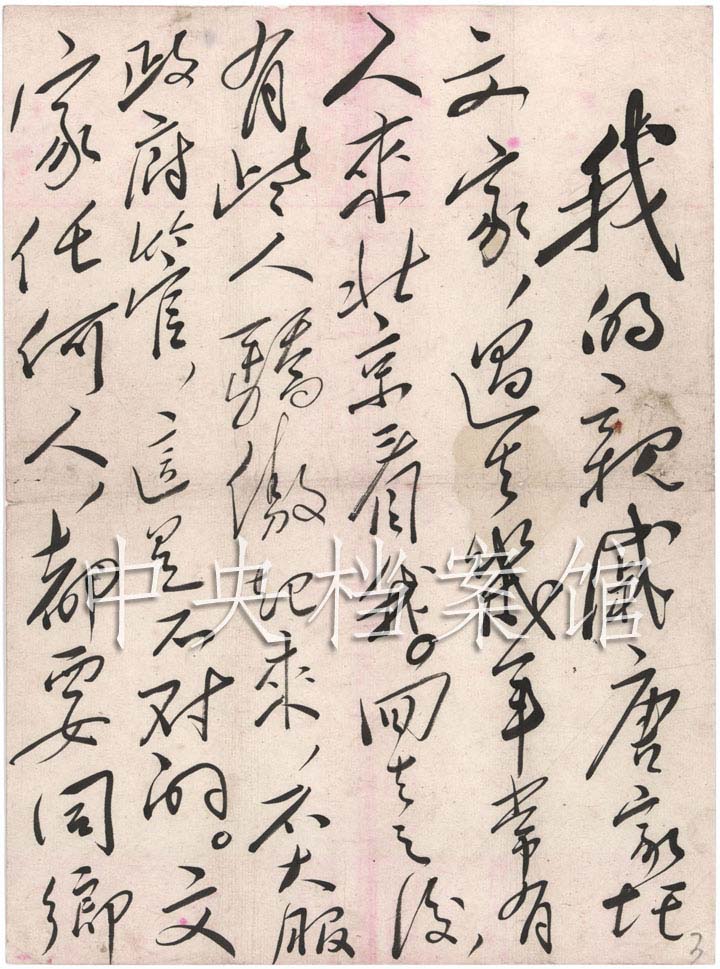 我的親戚唐家圫
文家，過去幾年常有
人來北京看我。回去之後，
有些人驕傲起來，不大服
政府管，這是不对的。文
家任何人，都要同鄉
中央档案馆
3